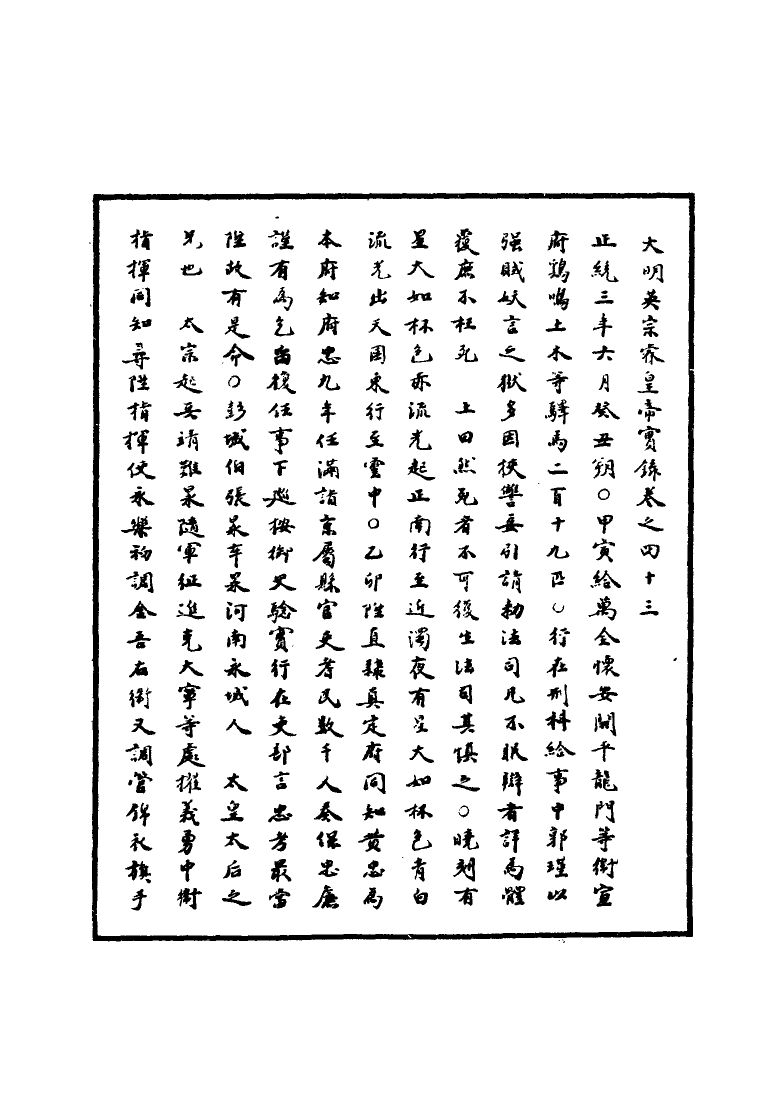 大明英宗睿皇帝實錄卷之四十三
正統三年六月癸丑朔○甲寅給萬全懷安開平龍門等衛宣
府鷄鳴土木等驛馬二百十九匹○行在刑科給事中郭瑾以
强賊妖言之獄多因挾讐妄引請勑法司凡不服辯者詳為體
覆庶不枉死　上曰然死者不可復生法司其慎之○曉刻有
星大如杯色赤流光起正南行至近濁夜有星大如杯色青白
流光出天囷東行至雲中○乙卯陞直隸真定府同知黄忠為
本府知府忠九年任滿詣京屬縣官吏耆民數千人奏保忠廉
謹有為乞留復任事下巡按御史驗實行在吏部言忠考最當
陞故有是命○彭城伯張泉卒泉河南永城人　太皇太后之
兄也　太宗起兵靖難泉隨軍征進克大寧等處擢義勇中衛
指揮同知尋陞指揮使永樂初調金吾右衛又調管錦衣旗手